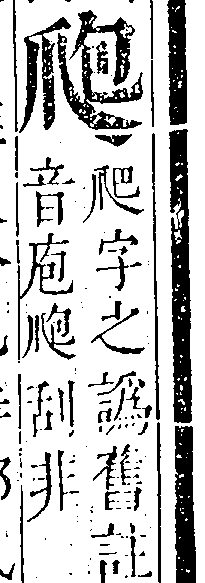 爮
爬字之譌舊註
音庖爮刮非